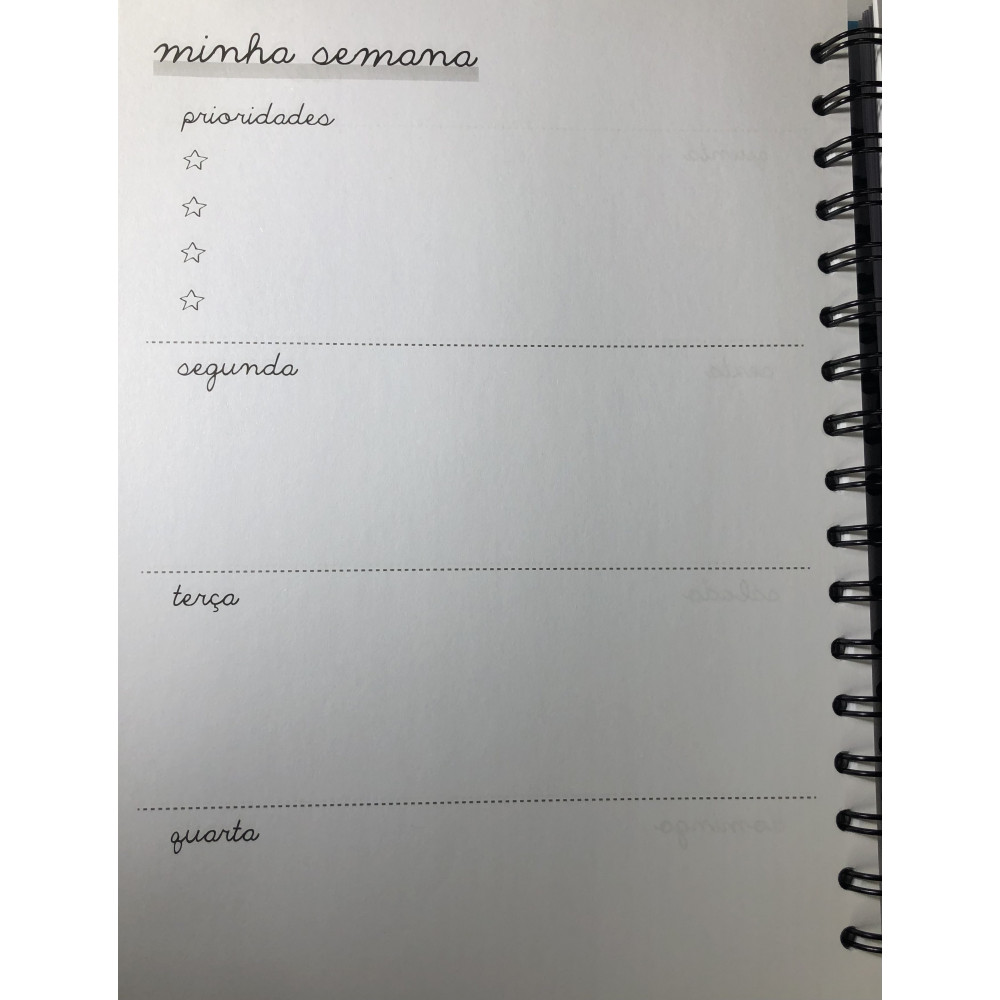 minha semana
prioridades
segunda
terça
quarta